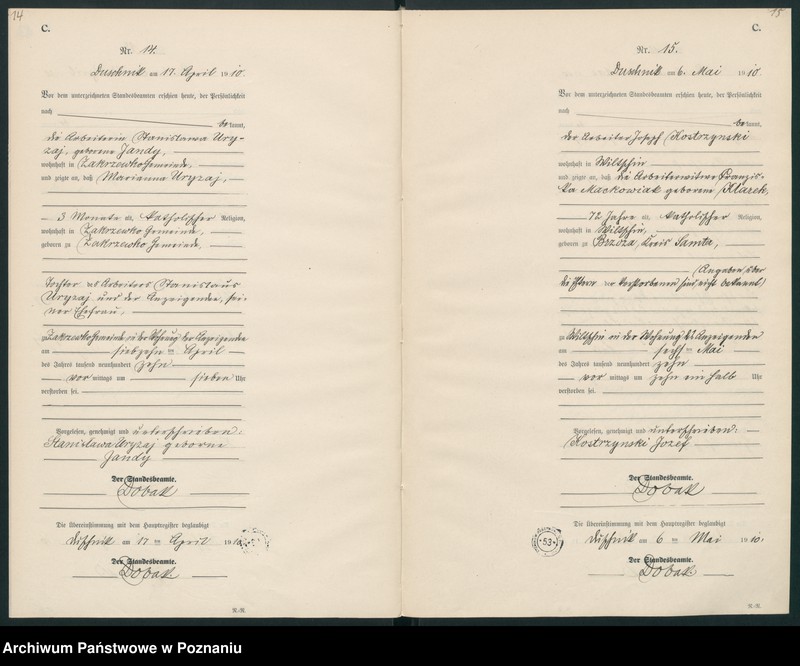 14
C.
Nr. 14.
Duschnik am 17. April 1910.
Vor dem unterzeichneten Standesbeamten erschien heute, der Persönlichkeit
nach
be kannt,
die Arbeiterin Stanislawa Ury-
zaj, geborene Jandy,
wohnhaft in Zakrzewko Gemeinde,
und zeigte an, daß Marianna Uryzaj,
3 Monate alt, katholischer Religion,
wohnhaft in Zakrzewko Gemeinde,
geboren zu Zakrzewko Gemeinde,
Tochter des Arbeiters Stanislaus
Uryzaj und der Anzeigenden, sei-
ner Ehefrau,
zu Zakrzewko Gemeinde in der Wohnung der Anzeigenden
am siebzehn ten April
des Jahres tausend neunhundert zehn
vor mittags um sieben Uhr
verstorben sei.
Vorgelesen, genehmigt und unterschrieben:
Stanisława Uryzaj geborne
Jandy
Der Standesbeamte.
Dobak
Die Übereinstimmung mit dem Hauptregister beglaubigt
Duschnik am 17 ten April 1910.
Der Standesbeamte.
Dobak
N.-R.
15
C.
Nr. 15.
Duschnik am 6. Mai 1910.
Vor dem unterzeichneten Standesbeamten erschien heute, der Persönlichkeit
nach
be kannt,
der Arbeiter Joseph Kostrzynski
wohnhaft in Wiltschin
und zeigte an, daß die Arbeiterwitwe Franzis-
ka Mackowiak geborene Klarek,
72 Jahre alt, katholischer Religion,
wohnhaft in Wiltschin,
geboren zu Brzoza, Kreis Samter,
(Angaben über
die Eltern der Verstorbenen sind nicht bekannt)
zu Wiltschin in der Wohnung des Anzeigenden
am sechs ten Mai
des Jahres tausend neunhundert zehn
vor mittags um zehn ein halb Uhr
verstorben sei.
Vorgelesen, genehmigt und unterschrieben:
Kostrzynski Jozef
Der Standesbeamte.
Dobak
Die Übereinstimmung mit dem Hauptregister beglaubigt
53
Duschnik am 6 ten Mai 1910.
Der Standesbeamte.
Dobak
N.-R.
Archiwum Państwowe w Poznaniu